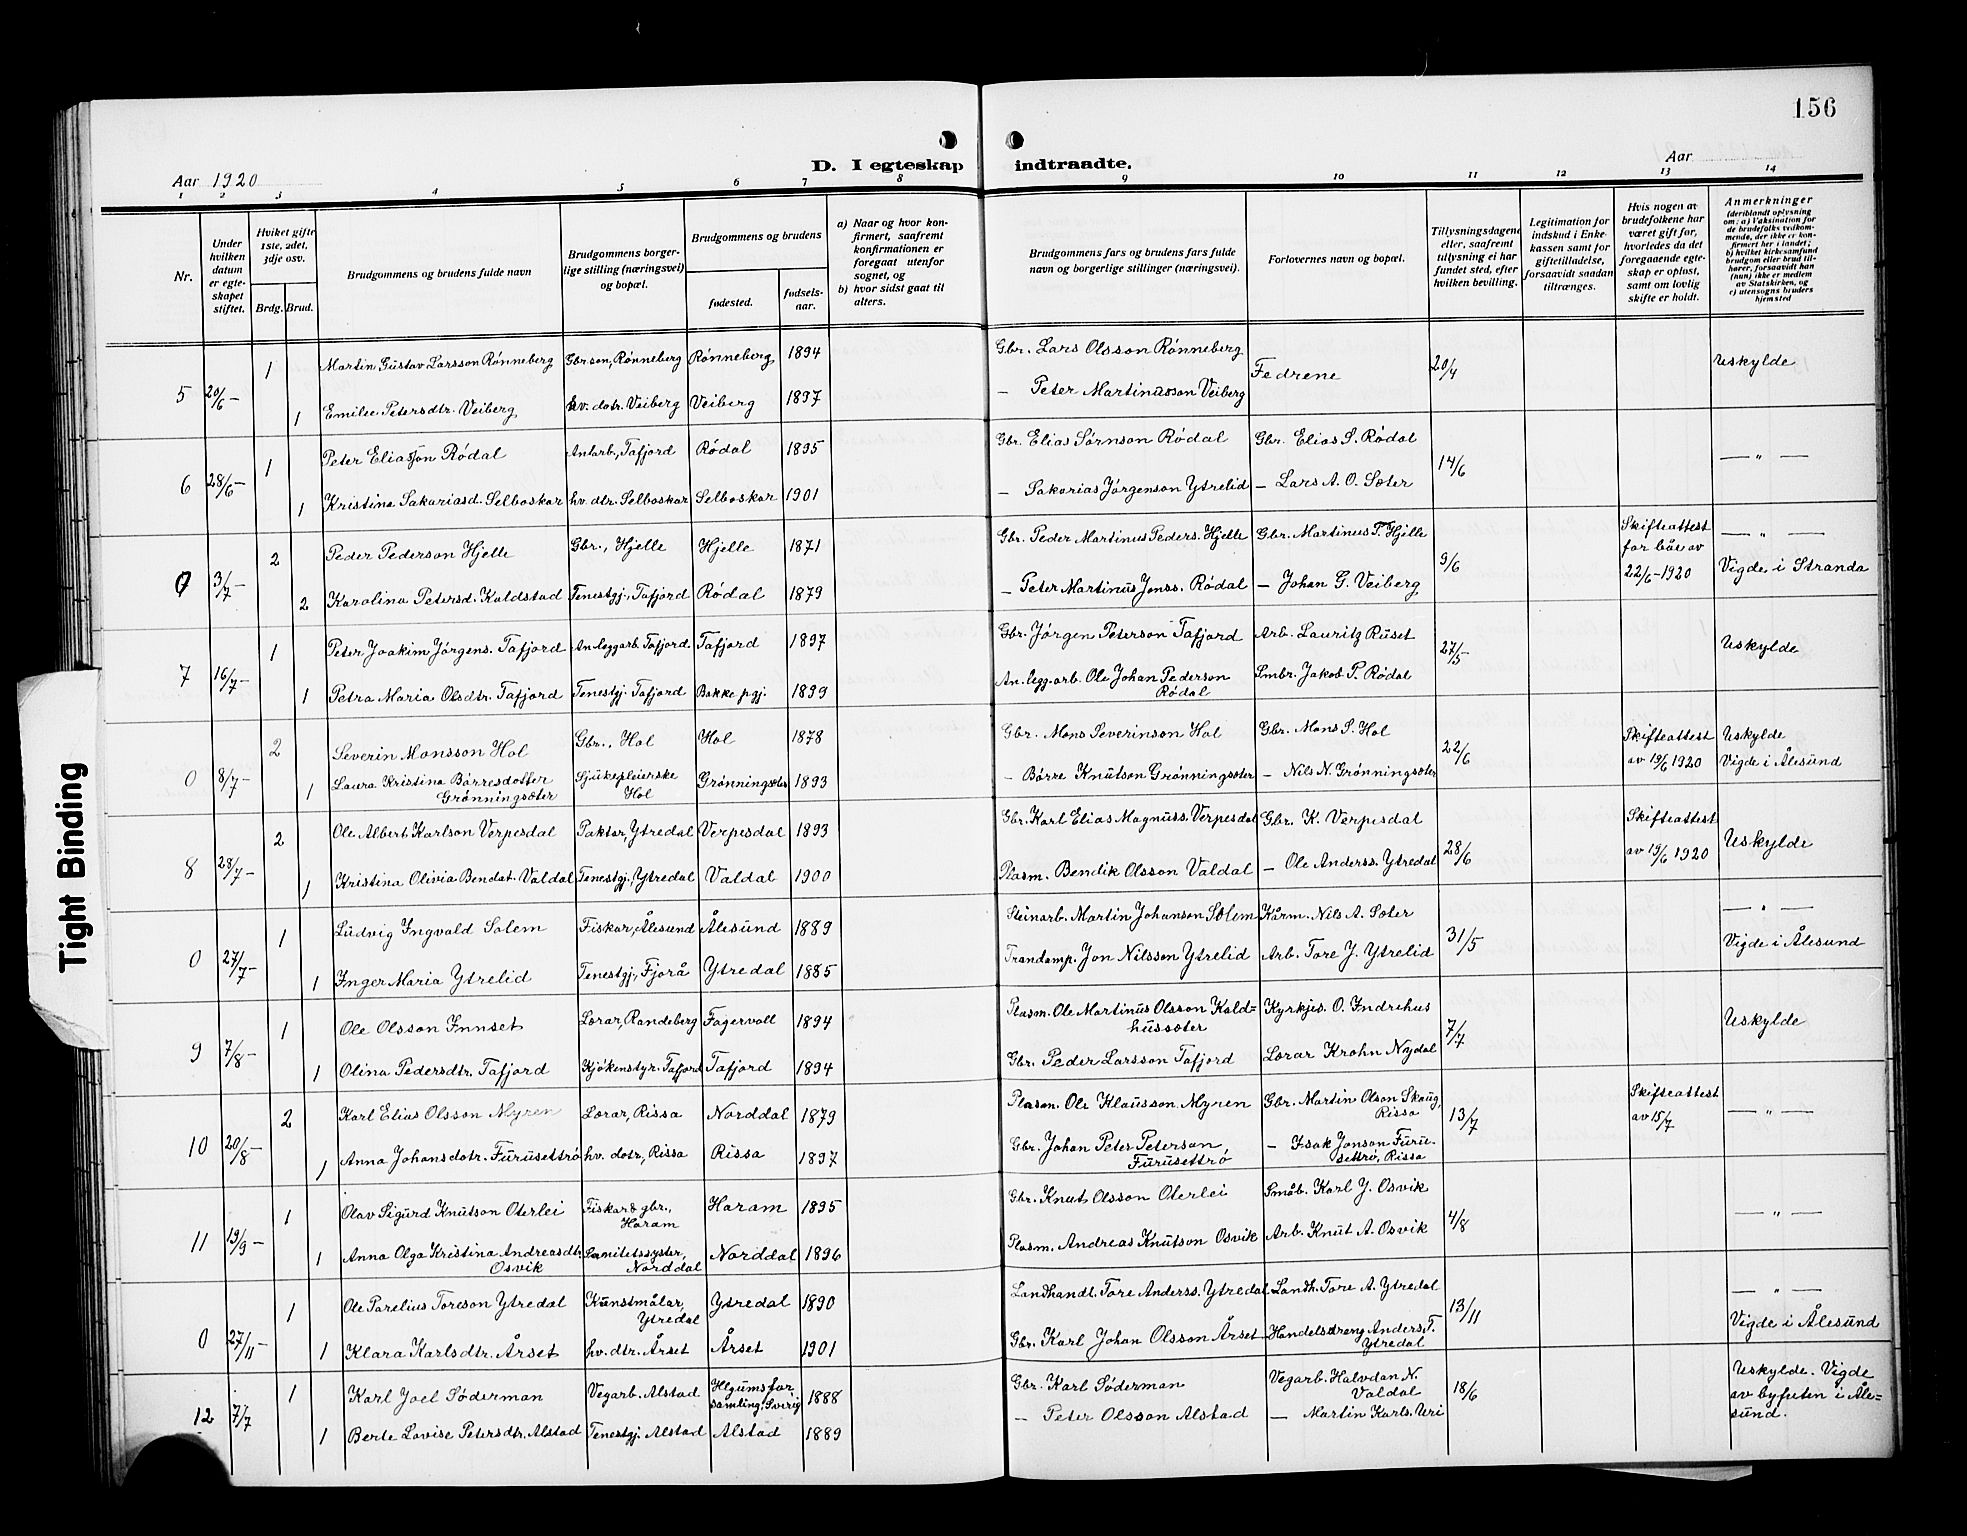 156
D. I egteskap indtraadte.
Aar 1920
Aar
1 2 3 4 5 6 7 8 9 10 11 12 13 14
Nr.
Under hvilken datum er egteskapet stiftet.
Hviket gifte 1ste, 2det, 3dje osv.
Brdg. Brud.
Brudgommens og brudens fulde navn
Brudgommens borgerlige stilling (næringsvei) og bopæl.
Brudgommens og brudens
fødested.
fødselsaar.
a) Naar og hvor konfirmert, saafremt konfirmationen er foregaat utenfor sognet, og
b) hvor sidst gaat til alters.
Brudgommens fars og brudens fars fulde navn og borgerlige stillinger (næringsvei).
Forlovernes navn og bopæl.
Tillysningsdagene eller, saafremt tillysning ei har fundet sted, efter hvilken bevilling.
Legitimation for indskud i Enkekassen samt for giftetilladelse, forsaavidt saadan tiltrænges.
Hvis nogen av brudefolkene har været gift før, hvorledes da det foregaaende egteskap er opløst, samt om lovlig skifte er holdt.
Anmerkninger (deriblandt oplysning om: a) Vaksination for de brudefolks vedkommende, der ikke er konfirmert her i landet; b) hvilket kirkesamfund brudgom eller brud tilhører, forsaavidt han (hun) ikke er medlem av Statskirken, og c) utensogns bruders hjemsted
5 20/6 – 1 Martin Gustav Larsson Rønneberg Gbrson, Rønneberg Rønneberg 1894 Gbr. Lars Olsson Rønneberg Fedrene 20/4 Uskylde
1 Emilie Petersdtr. Veiberg hv. dotr. Veiberg Veiberg 1897 – Peter Martinusson Veiberg
6 28/6 – 1 Peter Eliasson Rødal Anl.arb., Tafjord Rødal 1895 Gbr. Elias Sørnson Rødal Gbr. Elias S. Rødal 14/6 — " —
1 Kristina Sakariasd. Selboskar hv. dtr. Selboskar Selboskar 1901 – Sakarias Jørgenson Ytrelid – Lars A. O. Sæter
0 3/7 – 2 Peder Pederson Hjelle Gbr., Hjelle Hjelle 1871 Gbr. Peder Martinus Peders. Hjelle Gbr. Martinus P. Hjelle 9/6 Skifteattest for båe av 22/6-1920 — " — Vigde i Stranda
2 Karolina Petersd. Kaldstad Tenestgj., Tafjord Rødal 1879 – Peter Martinus Jonss. Rødal – Johan G. Veiberg
7 16/7 – 1 Peter Joakim Jørgens. Tafjord Anleggarb. Tafjord Tafjord 1897 Gbr. Jørgen Peterson Tafjord Arb. Lauritz Ruset 27/5 Uskylde
1 Petra Maria Olsdtr. Tafjord Tenestgj. Tafjord Bakke pgj. 1899 Anlegg.arb. Ole Johan Pederson Rødal Smbr. Jakob P. Rødal
0 8/7 – 2 Severin Monsson Hol Gbr., Hol Hol 1878 Gbr. Mons Severinson Hol Gbr. Mons S. Hol 22/6 Skifteattest av 19/6 1920 Uskylde Vigde i Ålesund
1 Laura Kristina Børresdotter Grønningsæter Sjukepleierske Hol Grønningsæter 1893 – Børre Knutson Grønningsæter – Nils N. Grønningsæter
8 28/7 – 2 Ole Albert Karlson Verpesdal Paktar, Ytredal Verpesdal 1893 Gbr. Karl Elias Magnuss. Verpesdal Gbr. K. Verpesdal 28/6 Skifteattest av 19/6 1920 Uskylde
1 Kristina Olivia Bendat. Valdal Tenestgj., Ytredal Valdal 1900 Plasm. Bendik Olsson Valdal – Ole Anderss. Ytredal
0 27/7 – 1 Ludvig Ingvald Solem Fiskar, Ålesund Ålesund 1889 Steinarb. Martin Johanson Solem Kårm. Nils A. Sæter 31/5 — " — Vigde i Ålesund
1 Inger Maria Ytrelid Tenestgj., Fjørå Ytredal 1885 Trandamp. Jon Nilsson Ytrelid Arb. Tore J. Ytrelid
9 7/8 – 1 Ole Olsson Innset Lærar, Randeberg Fagervoll 1894 Plasm. Ole Martinus Olsson Kaldhussæter Kyrkjes. O. Indrehus 7/7 Uskylde
1 Olina Pedersdtr. Tafjord Kjøkenstyr. Tafjord Tafjord 1894 Gbr. Peder Larsson Tafjord Lærar Krohn Nydal
10 20/8 – 2 Karl Elias Olsson Myren Lærar, Rissa Norddal 1879 Plasm. Ole Klausson Myren Gbr. Martin Olson Skaug, Rissa 13/7 Skifteattest av 15/7 — " —
1 Anna Johansdotr. Furusettrø hv. dotr, Rissa Rissa 1897 Gbr. Johan Peter Peterson Furusettrø – Isak Jonson Furusettrø, Rissa
11 19/9 – 1 Olav Sigurd Knutson Oterlei Fiskar & gbr., Haram Haram 1895 Gbr. Knut Olsson Oterlei Småb. Karl J. Osvik 4/8 — " —
1 Anna Olga Kristina Andreasdtr. Osvik Sanitetssyster, Norddal Norddal 1896 Plasm. Andreas Knutson Osvik Arb. Knut A. Osvik
0 27/11 – 1 Ole Parelius Toreson Ytredal Kunstmålar, Ytredal Ytredal 1890 Landhandl. Tore Anderss. Ytredal Landh. Tore A. Ytredal 13/11 — " — Vigde i Ålesund
1 Klara Karlsdtr. Årset hv. dtr. Årset Årset 1901 Gbr. Karl Johan Olsson Årset Handelsdreng Anders T. Ytredal
12 7/7 1 Karl Joel Søderman Vegarb. Alstad Hlgumsfor samling, Sverig 1888 Gbr. Karl Søderman Vegarb. Halvdan N. Valdal 18/6 Uskylde. Vigde av byfuten i Ålesund.
1 Berte Lovise Petersdtr. Alstad Tenestgj. Alstad Alstad 1889 – Peter Olsson Alstad — Martin Karls. Uri
Tight Binding